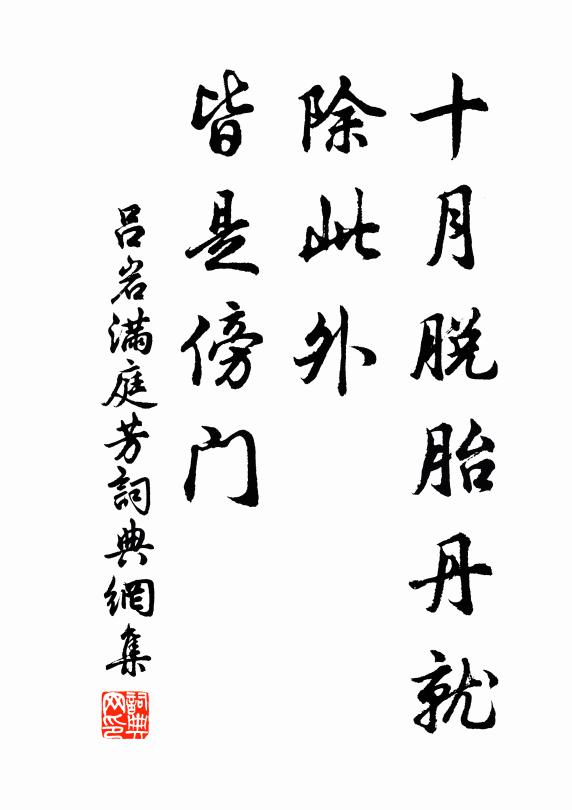 十月脱胎丹就
除此外
皆是傍门
吕岩满庭芳詞典網集
詞典网印